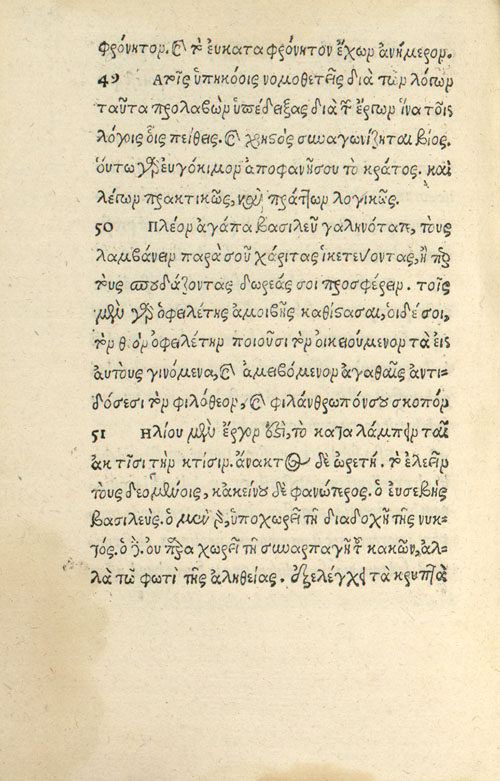 φρόνητον. καὶ τὸ ευκαταφρόνητον ἔχων ανήμερον.
49 Απῖς ὑπηκόοις νομοθετεῖς διὰ τῶν λόγων
ταῦτα προλαβὼν ὑπέδειξας διὰ τῶν ἔργων ἵνα τοῖς
λόγοις οἷς πείθεις. καὶ χρηστὸς συναγωνίζηται βίος.
ὅυτω γὰρ ευγόκιμον αποφανήσου τὸ κράτος. καὶ
λέγων πρακτικῶς, καὶ πράττων λογικῶς.
50 Πλέον αγάπα βασιλεῦ γαληνότατε, τοὺς
λαμβάνειν παρὰ σοῦ χάριτας ἱκετεύοντας, ἢ πρὸς
τοὺς σπουδάζοντας δωρεάς σοι προσφέρειν. τοῖς
μὲν γὰρ ὀφειλέτης ἀμοιβῆς καθίστασαι, ὁι δέ σοι,
τὸν θεὸν ὀφειλέτην ποιοῦσι τὸν οἰκειούμενον τὰ εἰς
αυτοὺς γινόμενα, καὶ ἀμειβόμενον αγαθαῖς ἀντι-
δόσεσι τὸν φιλόθεον, καὶ φιλάνθρωπόν σου σκοπόν
51 Ηλίου μὲν ἔργον ἐστὶ, τὸ καταλάμπειν ταῖς
ακτῖσι τὴν κτίσιν. ἄνακτος δὲ ἀρετή. τὸ ἐλεεῖν
τοὺς δεομένους, κἀκείνου δὲ φανώτερος. ὁ ευσεβὴς
βασιλεύς. ὁ μὲν γὰρ, ὑποχωρεῖ τῇ διαδοχῇ τῆς νυκ-
τός. ὁ δὲ. ου παραχωρεῖ τῇ συναρπαγῇ τῶν κακῶν, ἀλ-
λὰ τῶ φωτὶ τῆς ἀληθείας. ἐξελέγχει τὰ κρυπτὰ